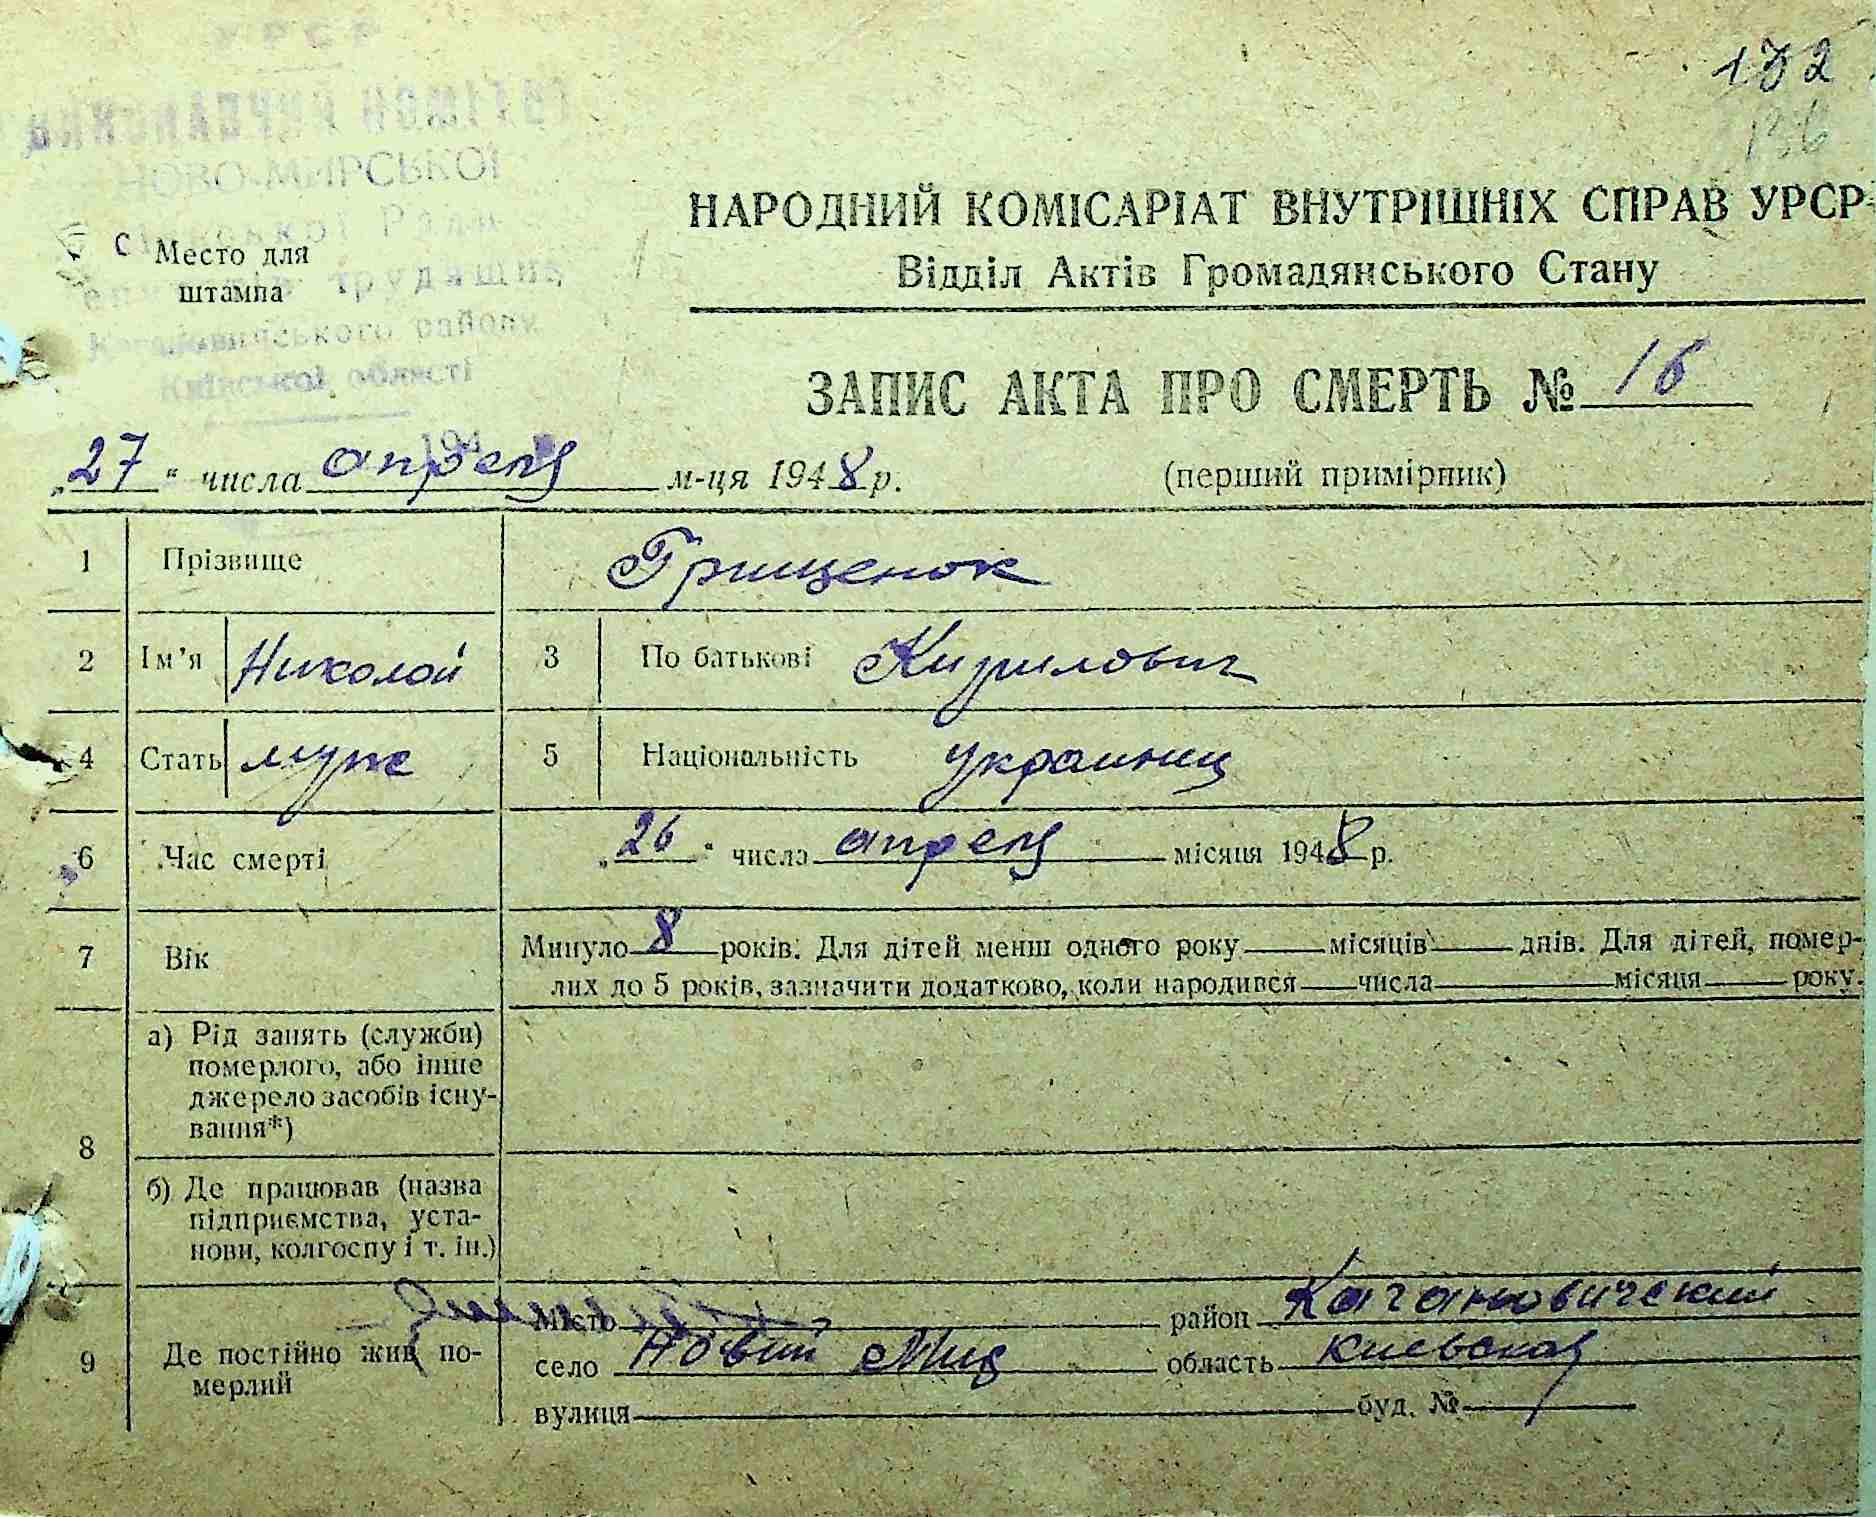 УРСР
НОВО-МИРСЬКОЇ
Сільської Ради
трудящих
Кагановичського району
Київської області
194
132
136
Место для
штампа
НАРОДНИЙ КОМІСАРІАТ ВНУТРІШНІХ СПРАВ УРСР
Відділ Актів Громадянського Стану
ЗАПИС АКТА ПРО СМЕРТЬ № 16
„27“ числа апреля м-ця 1948 р. (перший примірник)
1 Прізвище Грищенок
2 Ім’я Николой 3 По батькові Кирилович
4 Стать муж 5 Національність украинец
6 Час смерті „26“ числа апреля місяця 1948 р.
7 Вік Минуло 8 років. Для дітей менш одного року місяців днів. Для дітей, помер-
лих до 5 років, зазначити додатково, коли народився числа місяця року.
8 а) Рід занять (служби)
померлого, або інше
джерело засобів існу-
вання*)
б) Де працював (назва
підприємства, уста-
нови, колгоспу і т. ін.)
9 Де постійно жив по-
мерлий
місто район Кагановичский
село Новий Мир область Киевская
вулиця буд. №